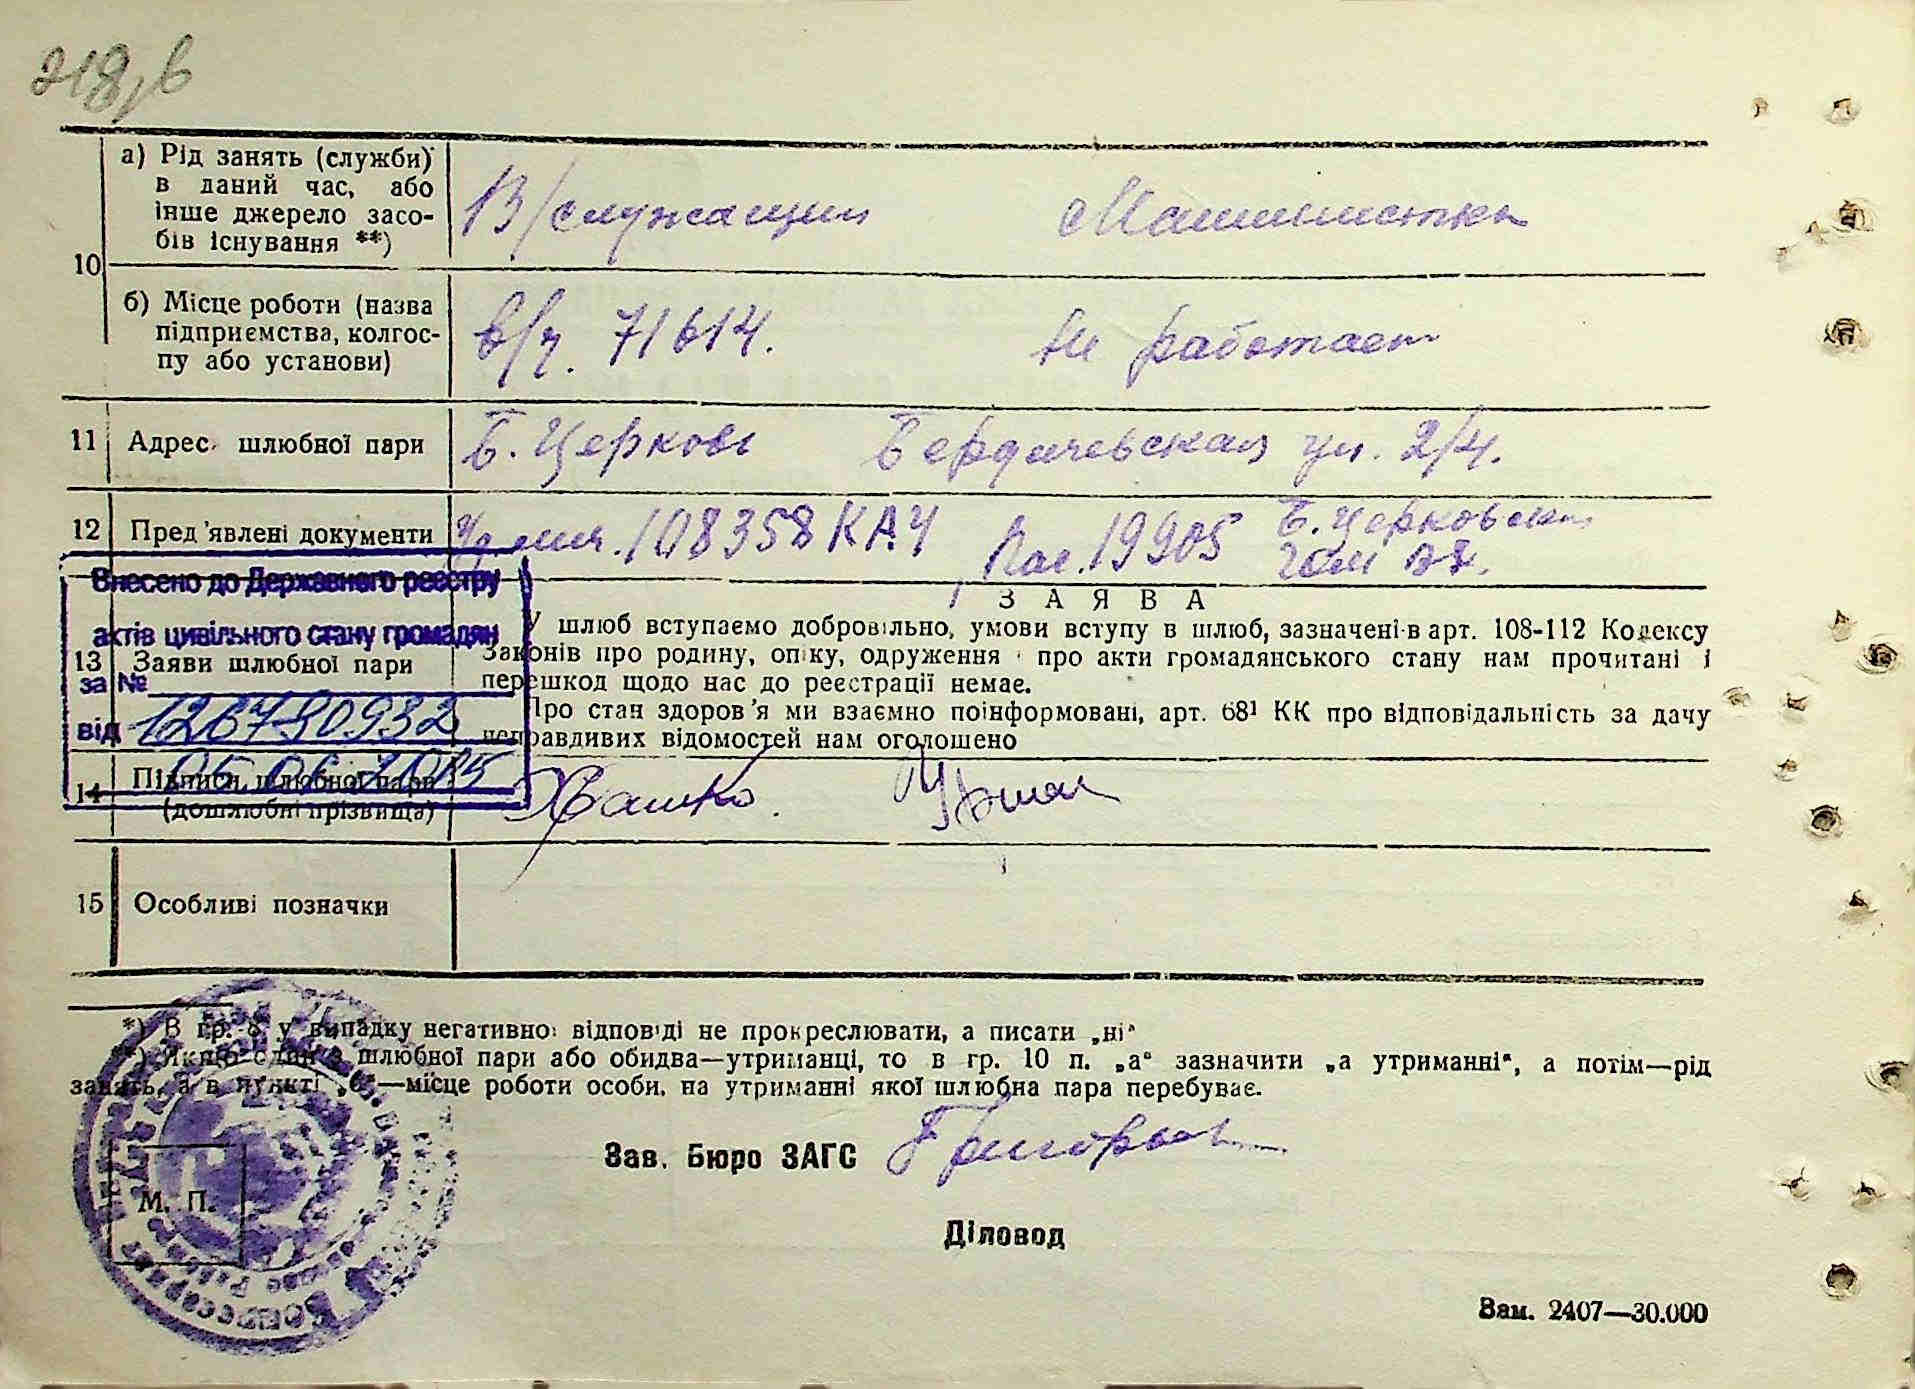 218, в
а) Рід занять (служби)
в даний час, або
інше джерело засо-
бів існування **)
В/служащий Машинистка
10
б) Місце роботи (назва
підприємства, колгос-
пу або установи)
в/ч. 71614. Не работает
11 Адрес шлюбної пари Б. Церковь Бердичевская ул. 2/4.
12 Пред'явлені документи 108358 КАЧ Пас. 19905 Б. Церковским
Внесено до Державного реєстру
актів цивільного стану громадян
за №
від 126790932
05 06 2015
ЗАЯВА
13 Заяви шлюбної пари
У шлюб вступаємо добровільно, умови вступу в шлюб, зазначені в арт. 108-112 Кодексу
Законів про родину, опіку, одруження і про акти громадянського стану нам прочитані і
перешкод щодо нас до реєстрації немає.
Про стан здоров'я ми взаємно поінформовані, арт. 68¹ КК про відповідальність за дачу
неправдивих відомостей нам оголошено
14 Підписи шлюбної пари
(дошлюбні прізвища)
15 Особливі позначки
*) В гр. 8 у випадку негативної відповіді не прокреслювати, а писати „ні"
**) Якщо один з шлюбної пари або обидва—утриманці, то в гр. 10 п. „а" зазначити „а утриманні", а потім—рід
занять, а в пункті „б"—місце роботи особи, на утриманні якої шлюбна пара перебуває.
Зав. Бюро ЗАГС
М. П.
Діловод
Зам. 2407—30.000